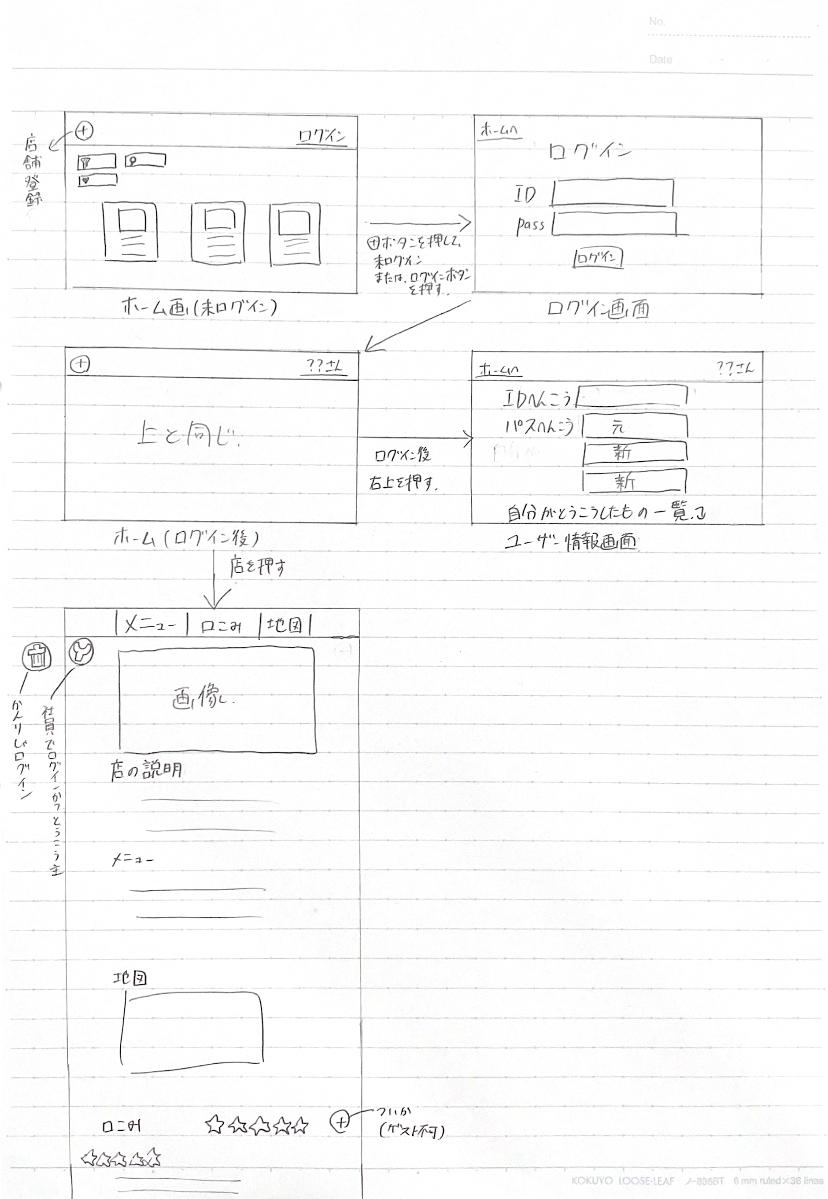 No.
Date
店舗登録
ログイン
ホームへ
ログイン
ID
pass
ログイン
⊕ボタンを押して、
未ログイン
または、ログインボタン
を押す.
ホーム画(未ログイン)
ログイン画面
??さん
上と同じ.
ログイン後
右上を押す.
ホームへ
??さん
IDへんこう
パスへんこう
元
新
新
自分がとうこうしたもの一覧.↓
ホーム(ログイン後)
ユーザー情報画面
店を押す
メニュー
口こみ
地図
画像.
かんりしゃログイン
社員でログインかつとうこう主
店の説明
メニュー
地図
口こみ
☆☆☆☆☆
ついか
(ゲスト不可)
☆☆☆☆☆
KOKUYO LOOSE-LEAF ノ-836BT 6 mm ruled×36 lines